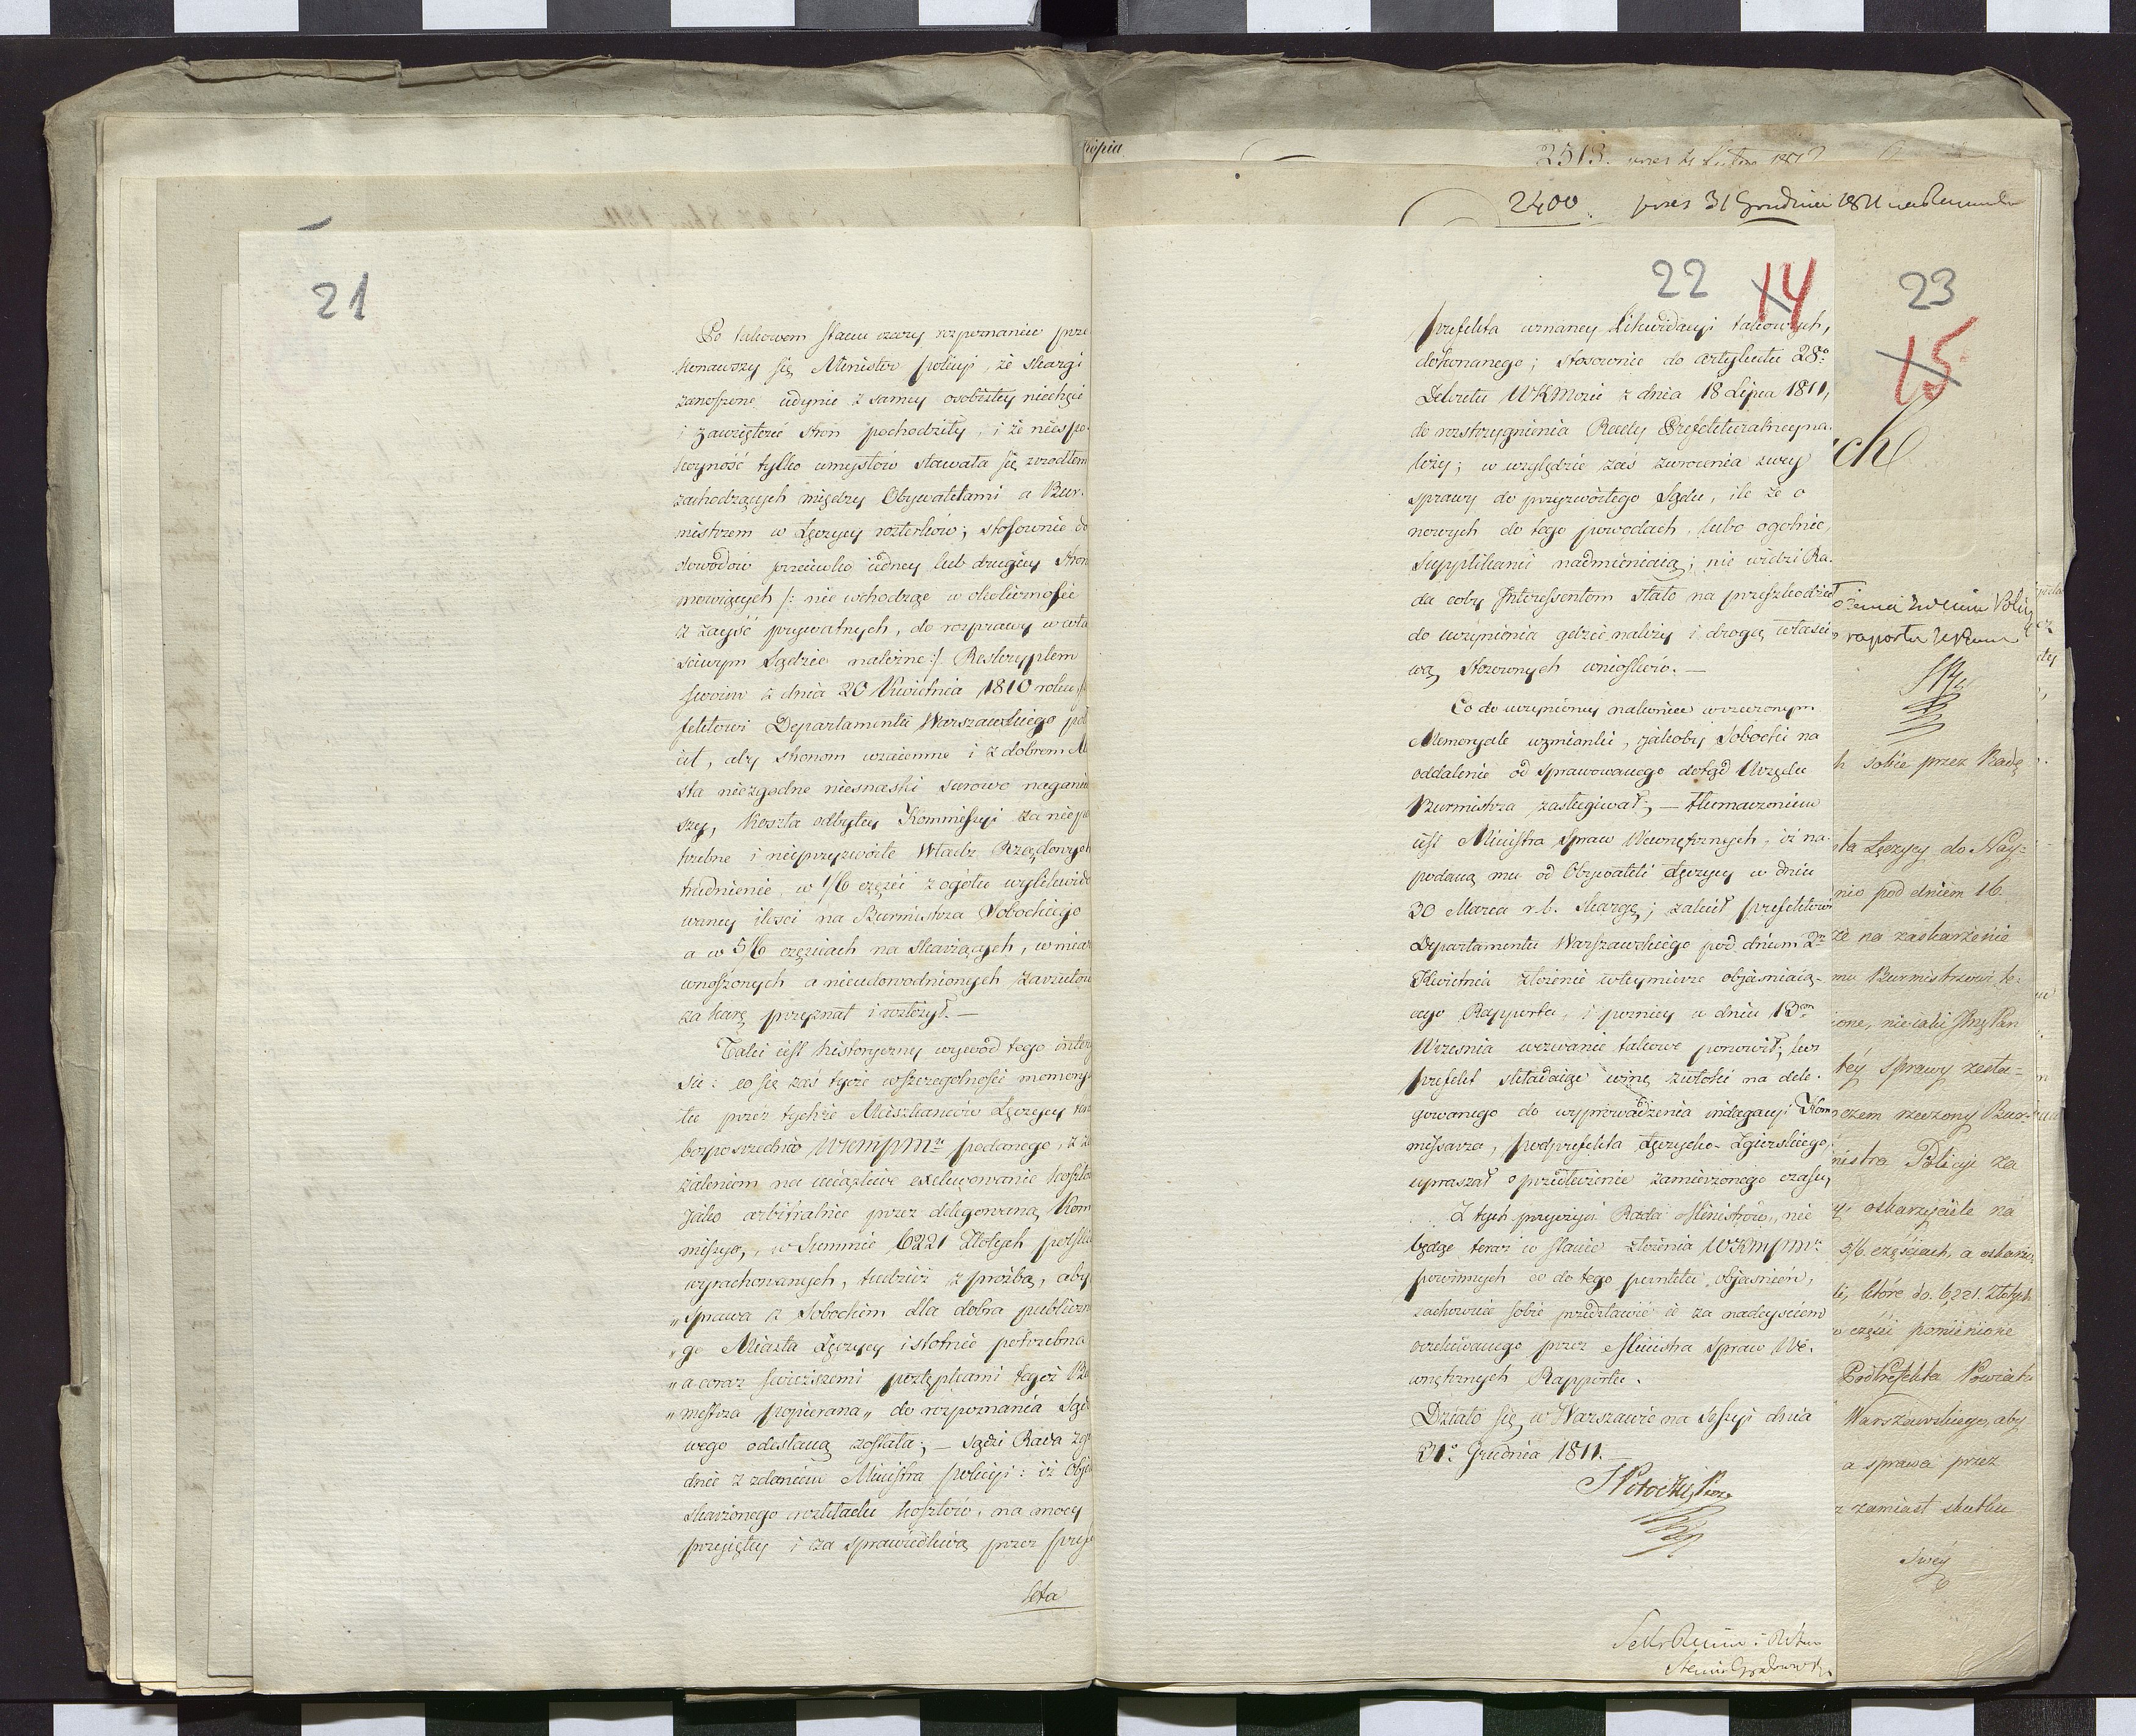 21
Po takowem stanu rzeczy rozpoznaniu prze
konawszy się Minister policyi, że skargi
zanoszone iedynie z samey osobistey niechęci
i zawziętości stron pochodziły, i że niespo-
koyność tylko umysłów stawała się zrzodłem
zachodzących między Obywatelami a Bur-
mistrzem w Łęczycy rozterków; stosownie do
dowodów przeciwko iedney lub drugiey stron
mowiących /: nie wchodząc w okoliczności
z zayść prywatnych, do rozprawy w wła
sciwym Sądzie należne:/ Reskryptem
swoim z dnia 20 Kwietnia 1810 roku,
fektowi Departamentu Warszawskiego pol
cił, aby stronom wzaiemne i z dobrem Mi
sta niezgodne niesnaski surowo naganiw
szy, koszta odbytey Kommissyi za niepo
trzebne i nieprzyzwoite Władz Rządowych
trudnienie, w 1/6 części z ogółu wylikwido
waney ilości na Burmistrza Sobockiego
a w 5/6 częściach na Skarżących, w miar
wnoszonych a nieudowodnionych zarzutów
za karę przyznał i rozłożył. —
Taki iest historyczny wywód tego inter
su: co się zaś tycze wszczególności memory-
łu przez tychże Mieszkanców Łęczycy
bezposrednio WKMPMu podanego, z
żaleniem na uciążliwe exekwowanie kosztó
Jako arbitralnie przez delegowaną Kom
missyą, w Summie 6221 Złotych polski
wyrachowanych, tudzież z prośbą, aby
„Sprawa z Sobockim dla dobra publiczn
„go Miasta Łęczycy istotnie potrzebna
„a coraz swieższemi postępkami tegoż Bu
„mistrza popierana„ do rozpoznania Sąd
wego odesłaną została; — sądzi Rada zgo
dnie z zdaniem Ministra policyi: iż obja
skarżonego rozkładu kosztów, na mocy
przyiętey i za sprawiedliwą przez prefe
kta
Kopia
2513.
2400. przez 31 Grudnia 1811
22 14
prefekta uznaney Likwidacyi takowych,
dokonanego; stosownie do artykułu 28o
Dekretu WKMości z dnia 18 Lipca 1811,
do rozstrzygnienia Rady Prefekturalney na-
leży; w względzie zaś zwrócenia swey
sprawy do przyzwoitego Sądu, ile że o
nowych do tego powodach, lubo ogolnie
Supplikanci nadmieniaią; nie widzi Ra-
da coby Interessentom stało na przeszkodzie
do uczynienia gdzie należy i drogą właści
wą stosownych wniosków. —
Co do uczynioney nakoniec w rzeczonym
Memoryale wzmianki, jakoby Sobocki na
oddalenie od sprawowanego dotąd Urzędu
Burmistrza zasługiwał; — tłumaczeniem
iest Ministra Spraw Wewnętrznych, iż na
podaną mu od Obywateli Łęczycy w dniu
30 Marca r. b. skargę; zalecił prefektowi
Departamentu Warszawskiego pod dniem 2m
Kwietnia złożenie w tey mierze objasniaią-
cego Rapportu, i pozniey w dniu 13m
Września wezwanie takowe ponowił; lecz
prefekt składaiąc winę zwłoki na dele-
gowanego do wyprowadzenia indagacyi Kom
missarza, podprefekta Łęczycko-Zgierskiego,
upraszał o przedłużenie zamierzonego czasu,
Z tych przyczyn Rada Ministrów, nie
będąc teraz w stanie złożenia WKMPMu
powinnych co do tego punktu objaśnień,
zachowuie sobie przedstawić ie za nadeyściem
oczekiwanego przez Ministra Spraw We-
wnętrznych Rapportu.
Działo się w Warszawie na Sessyi dnia
31o Grudnia 1811.
23
15
ch
raportu
h sobie przez Radę
ta Łęczycy do Nay-
nio pod dniem 16
że na zaskarżenie
mu Burmistrzowi
tey sprawy zesta-
czem rzeczony Bur-
nistra Policyi za
y; oskarżyciele na
5/6 częściach, a oskarżo
li, które do 6221. Złotych
części pomienione
PodPrefekta Powiatu
Warszawskiego, aby
a sprawa przez
z zamiast skutku
swéy